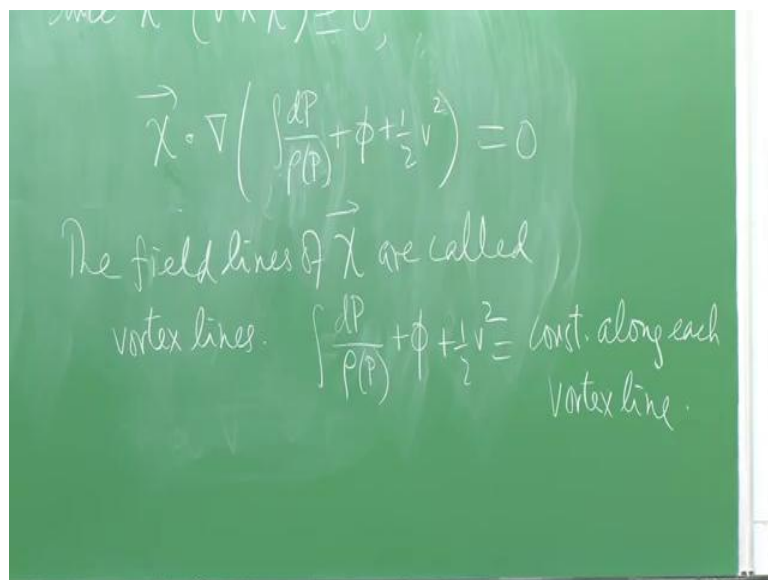 χ⃗ · ∇(∫ dP/ρ(P) + φ + ½ v²) = 0
The field lines of χ⃗ are called
vortex lines. ∫ dP/ρ(P) + φ + ½ v² = const. along each
vortex line.